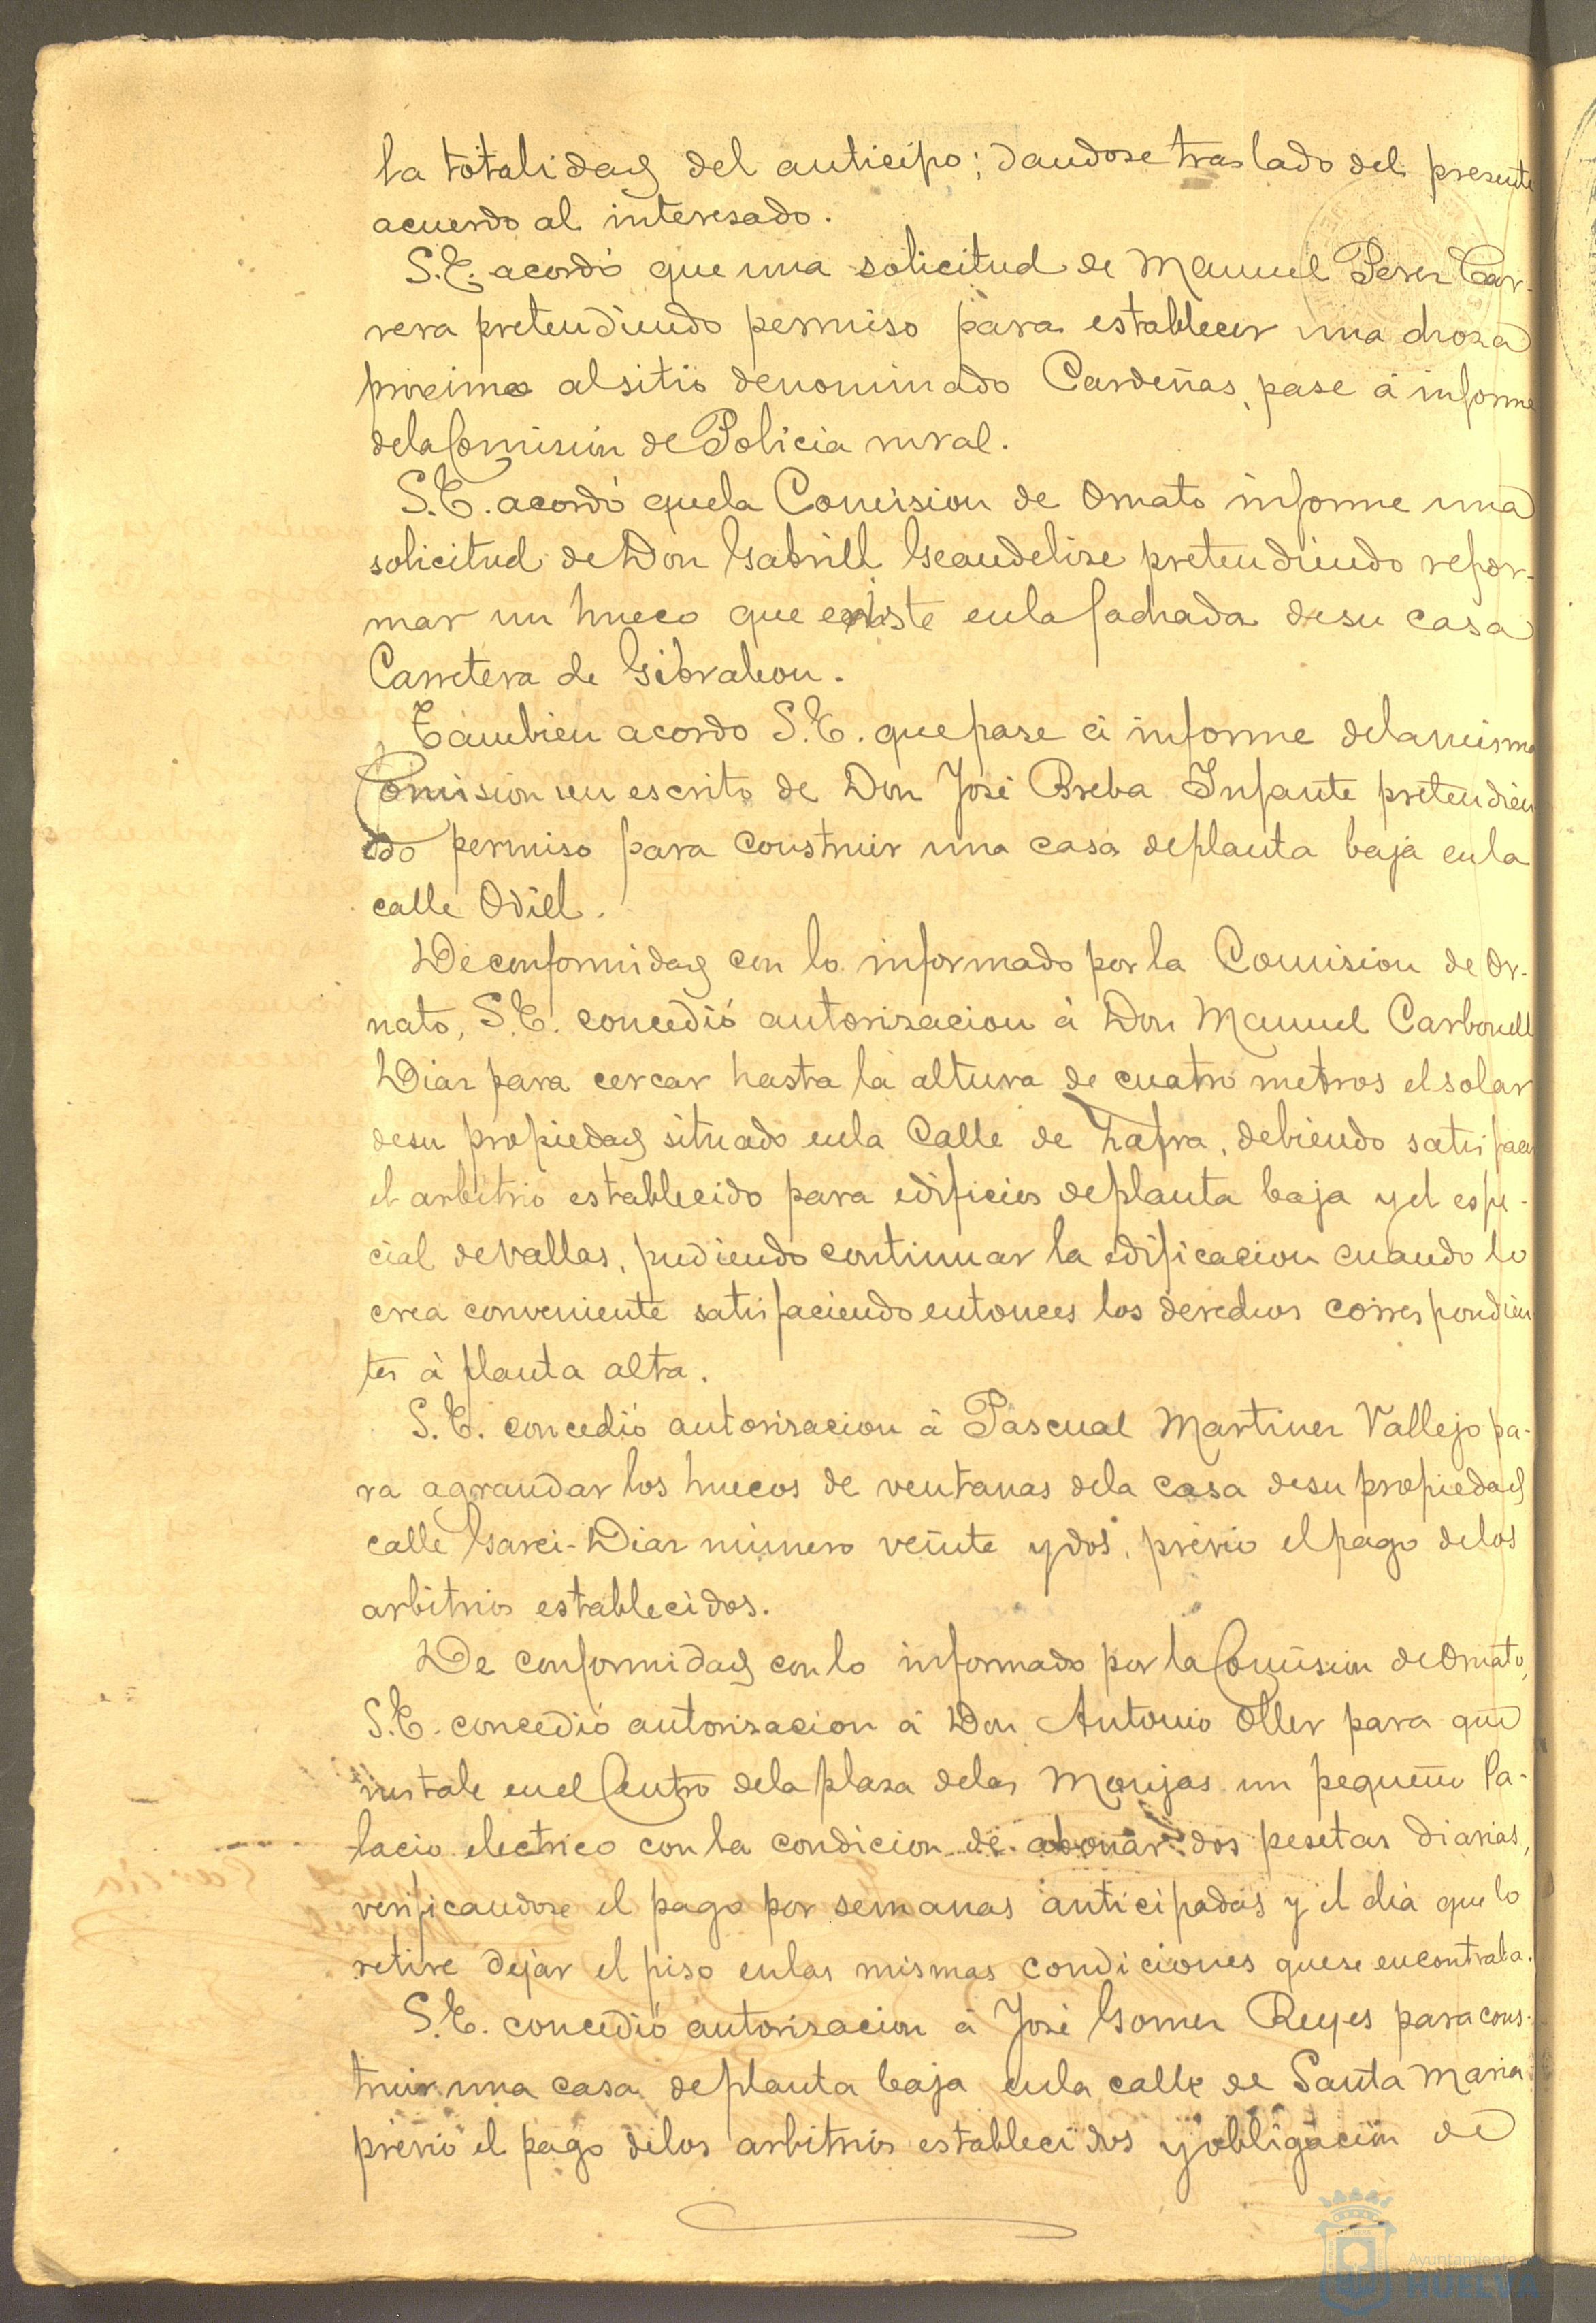 la totalidad del anticipo; dandose traslado del presente
acuerdo al interesado.
S.E. acordó que una solicitud de Manuel Perez Car-
rera pretendiendo permiso para establecer una choza
proximo al sitio denominado Cardeñas, pase á informe
de la Comision de Policia rural.
S.E. acordó que la Comision de Ornato informe una
solicitud de Don Gabriel pretendiendo refor-
mar un hueco que existe en la fachada de su casa
Carretera de Gibraleon.
Tambien acordo S.E. que pase á informe de la misma
Comision un escrito de Don José Breba Infante pretendien
do permiso para construir una casa de planta baja en la
calle Odiel.
De conformidad con lo informado por la Comision de Or-
nato, S.E. concedió autorizacion á Don Manuel Carbonell
Diaz para cercar hasta la altura de cuatro metros el solar
de su propiedad situado en la Calle de Zafra, debiendo satisfacer
el arbitrio establecido para edificios de planta baja y el espe-
cial de vallas, pudiendo continuar la edificacion cuando lo
crea conveniente satisfaciendo entonces los derechos correspondien
tes á planta alta.
S.E. concedió autorizacion á Pascual Martinez Vallejo pa-
ra agrandar los huecos de ventanas de la casa de su propiedad
calle Garci-Diaz número veinte y dos, prévio el pago de los
arbitrios establecidos.
De conformidad con lo informado por la Comision de Ornato,
S.E. concedió autorizacion á Don Antonio Oller para que
instale en el Centro de la plaza de las Monjas un pequeño Pa-
lacio electrico con la condicion de abonar dos pesetas diarias,
verificandose el pago por semanas anticipadas y el dia que lo
retire dejar el piso en las mismas condiciones que se encontraba.
S.E. concedió autorizacion á José Gomez Reyes para cons-
truir una casa de planta baja en la calle de Santa Maria
prévio el pago de los arbitrios establecidos y obligacion de
Ayuntamiento
HUELVA